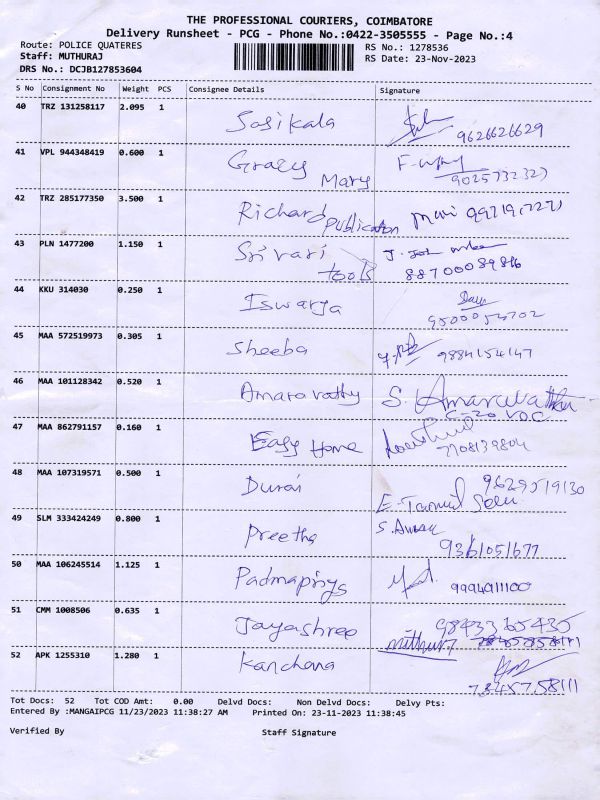 THE PROFESSIONAL COURIERS, COIMBATORE
Delivery Runsheet - PCG - Phone No.:0422-3505555 - Page No.:4
Route: POLICE QUATERES RS No.: 1278536
Staff: MUTHURAJ RS Date: 23-Nov-2023
DRS No.: DCJB127853604
S No Consignment No Weight PCS Consignee Details Signature
40 TRZ 131258117 2.095 1 Sasikala
9626626629
41 VPL 944348419 0.600 1 Gracy
Mary
42 TRZ 285177350 3.500 1 Richard Publication
43 PLN 1477200 1.150 1 Srivari
tools
44 KKU 314030 0.250 1 Iswarja
9500054702
45 MAA 572519973 0.305 1 Sheeba 9884154147
46 MAA 101128342 0.520 1 Amaravathy S. Amaravathi
47 MAA 862791157 0.160 1 Easy Home
7708139804
48 MAA 107319571 0.500 1 Durai 9629519130
49 SLM 333424249 0.800 1 Preetha
9361051677
50 MAA 106245514 1.125 1 Padmapriya 9994911100
51 CMM 1008506 0.635 1 Jayashree 9843365435
52 APK 1255310 1.280 1 Kanchana
7345758111
Tot Docs: 52 Tot COD Amt: 0.00 Delvd Docs: Non Delvd Docs: Delvy Pts:
Entered By :MANGAIPCG 11/23/2023 11:38:27 AM Printed On: 23-11-2023 11:38:45
Verified By Staff Signature